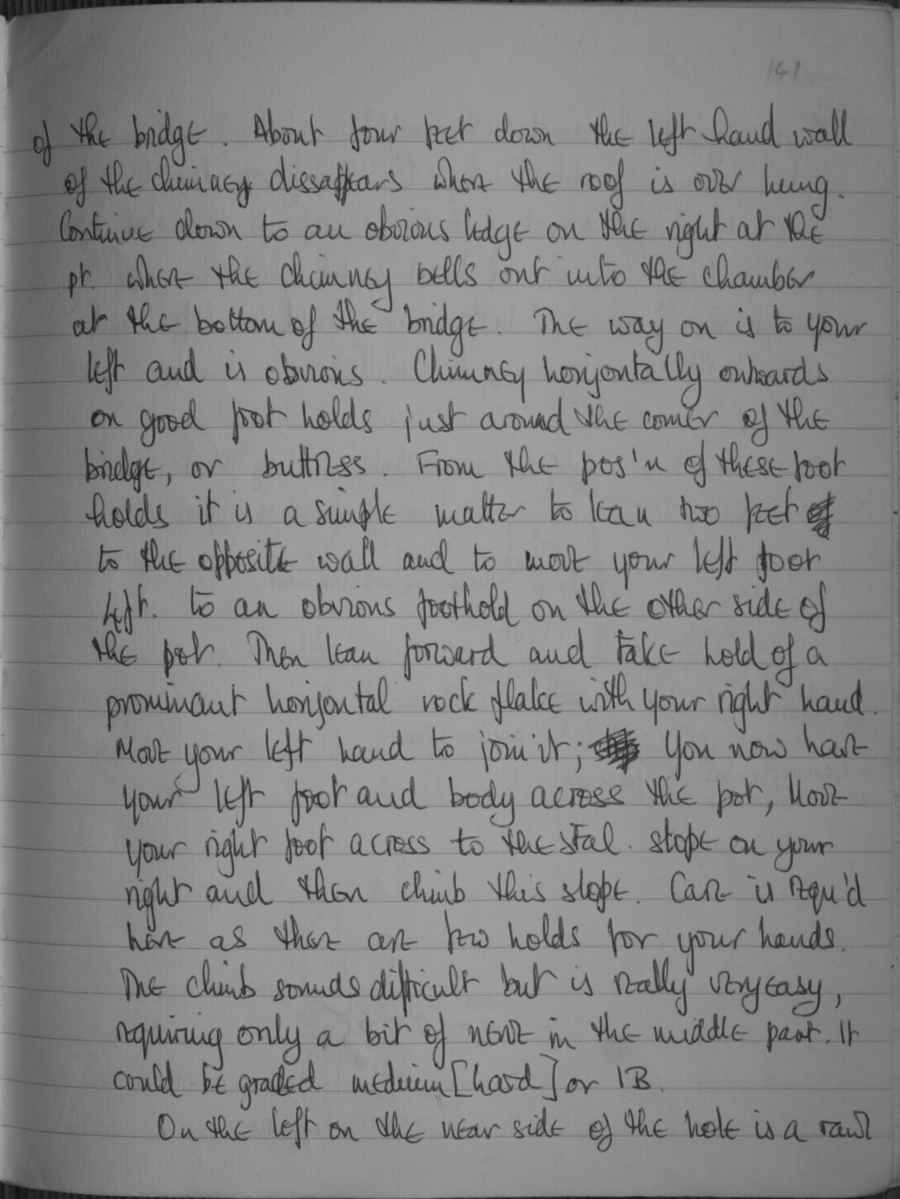 141
of the bridge. About four feet down the left hand wall
of the chimney dissappears where the roof is over hung.
Continue down to an obvious ledge on the right at the
pt. where the chimney bells out into the chamber
at the bottom of the bridge. The way on is to your
left and is obvious. Chimney horizontally outwards
on good foot holds just around the corner of the
bridge, or buttress. From the pos'n of these foot
holds it is a simple matter to lean two feet
to the opposite wall and to move your left foot
left. to an obvious foothold on the other side of
the pot. Then lean forward and take hold of a
prominant horizontal rock flake with your right hand.
Move your left hand to join it; You now have
your left foot and body across the pot, Move
your right foot across to the stal. slope on your
right and then climb this slope. Care is requ'd
here as there are few holds for your hands.
The climb sounds difficult but is really very easy,
requiring only a bit of nerve in the middle part. It
could be graded medium [hard] or 1B.
On the left on the near side of the hole is a rawl